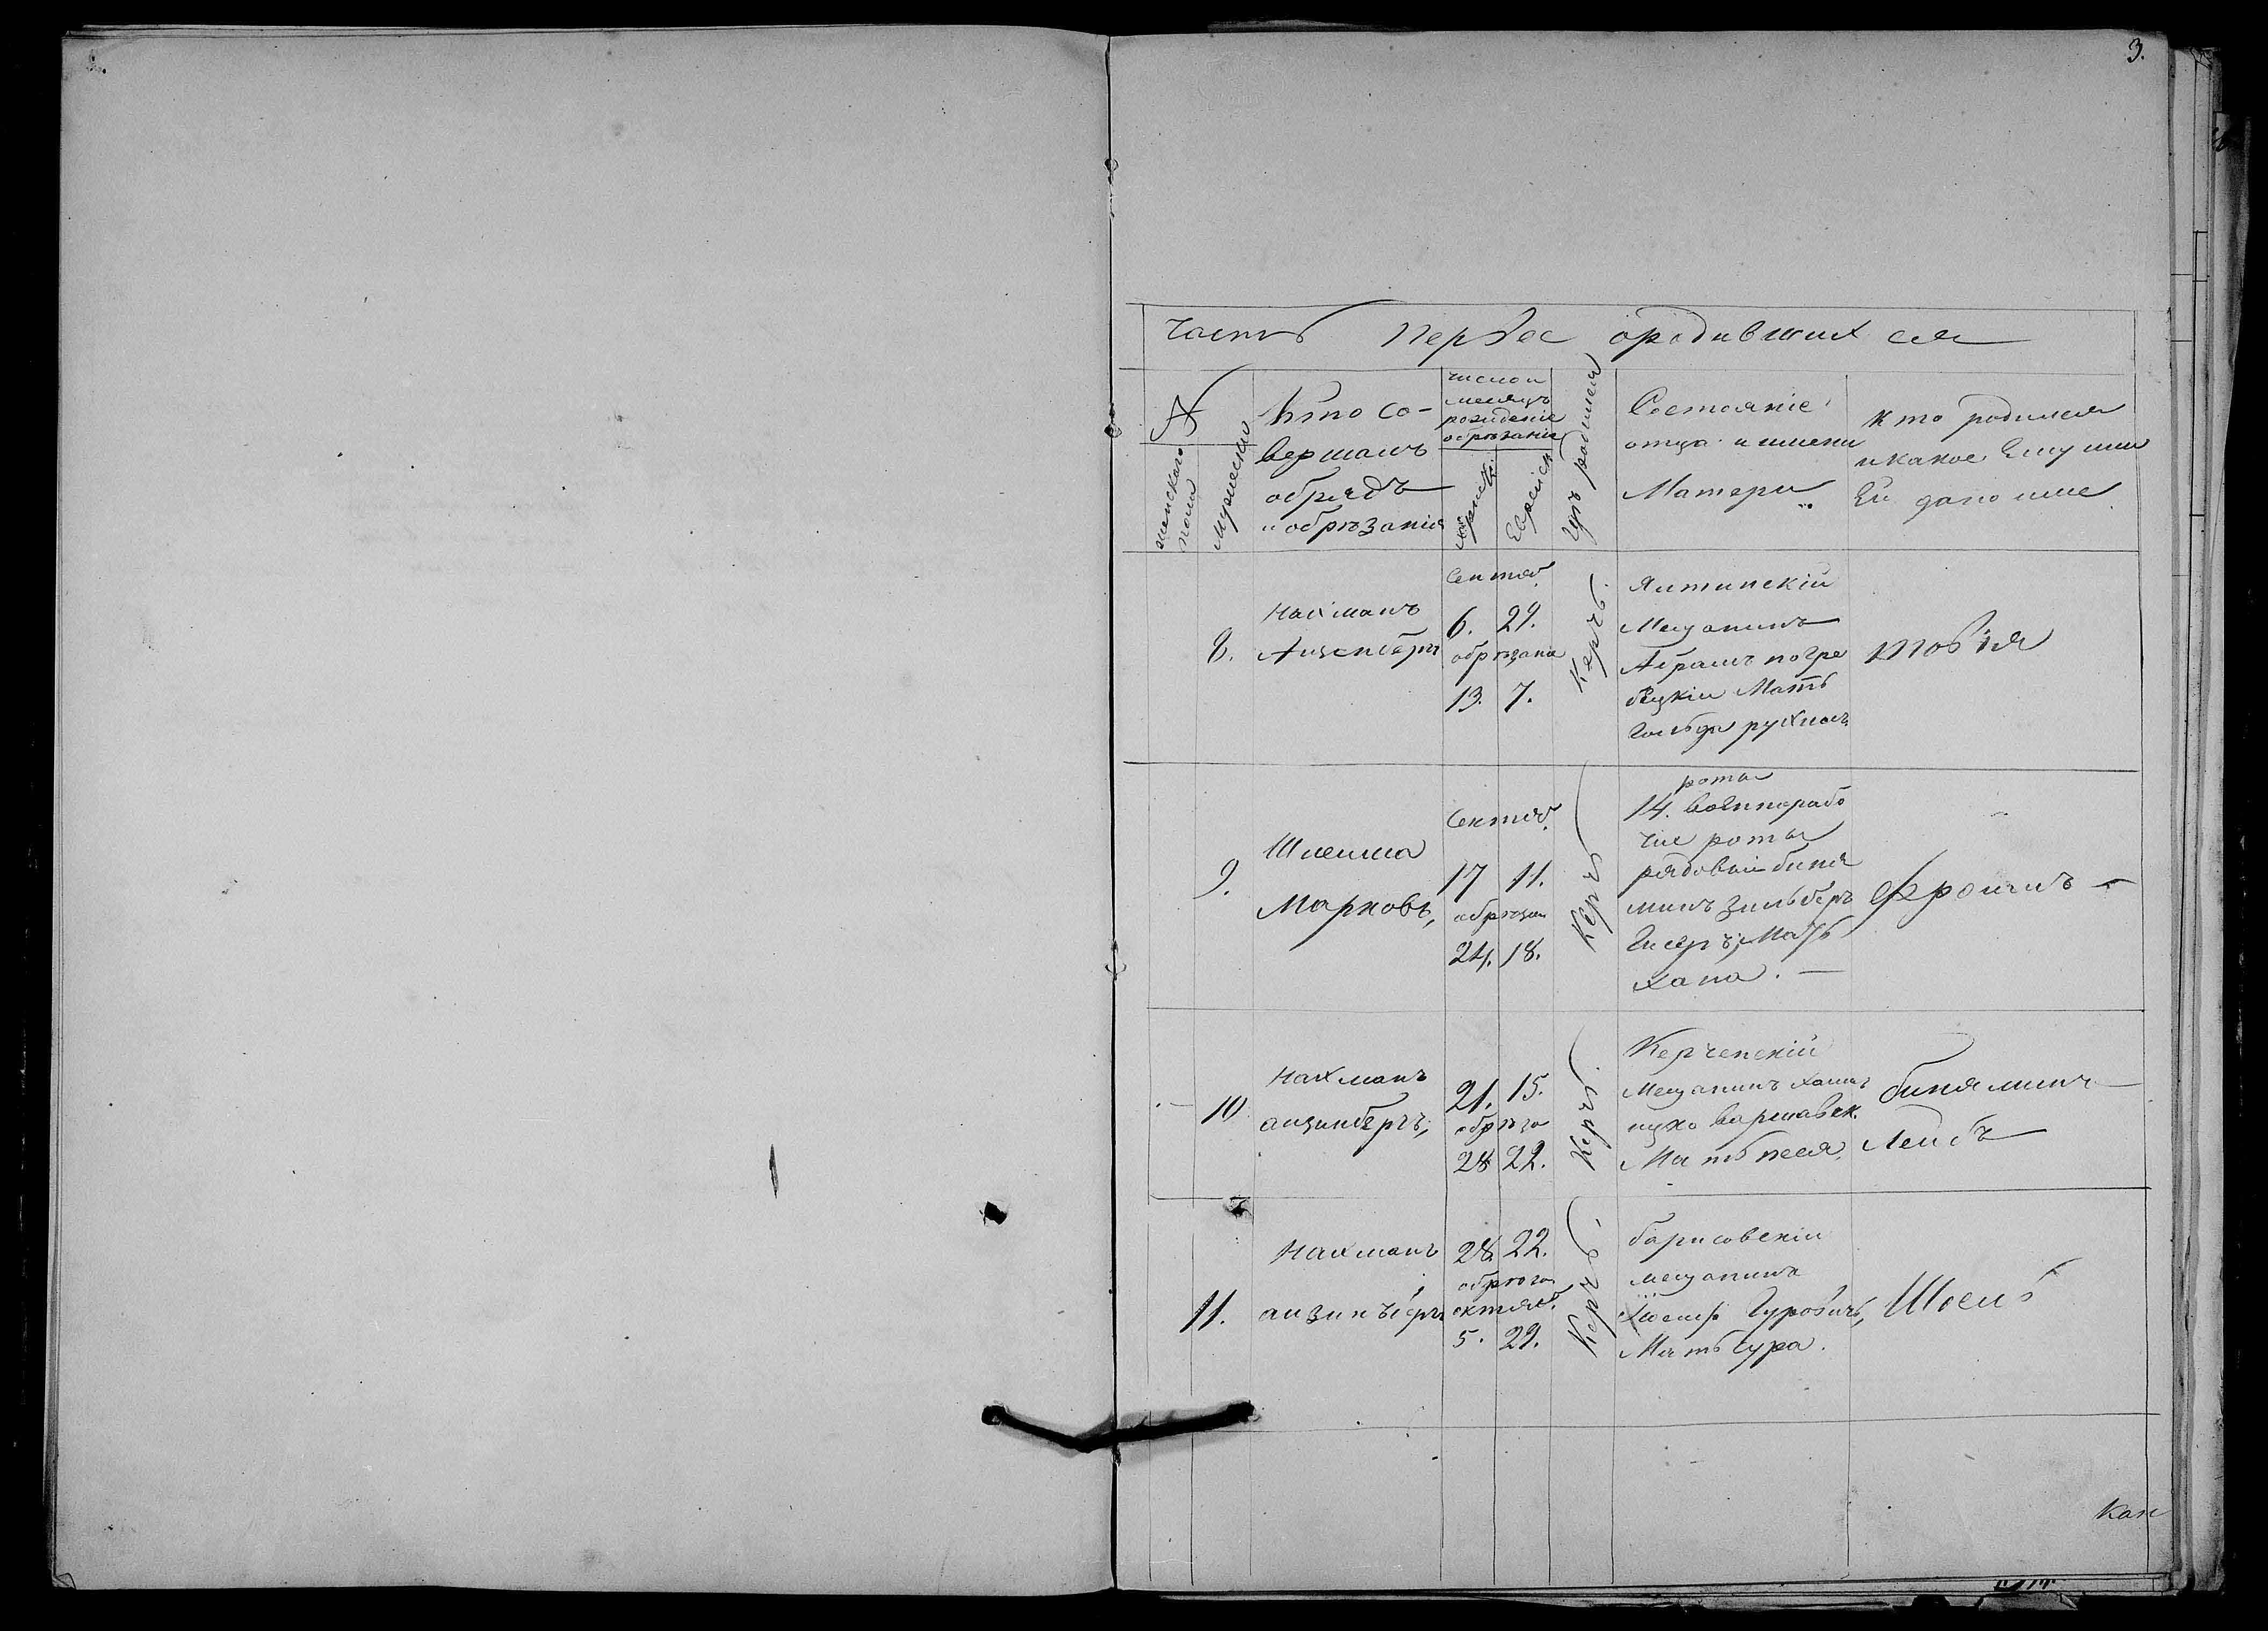 3.
часть перваа ородившихся
№
женскаго пола
мужескаго
Кто со-
вершалъ
обрядъ
и обрѣзанія
число и
месяцъ
рождение
обрѣзаніе
христ.
Еврейск
гдѣ родился
Состояніе
отца и имени
Матери
кто родился
и какое Ему или
Ей дано имя
8.
Нахманъ
Аизенберг
Сентяб.
6. 29.
обрѣзана
13. 7.
Керчь.
Ялтинскій
Мещанинъ
Абрамъ погре
бецкіи Мать
Гольда рухмаъ
товія
9.
Шлеима
Марковъ,
Сентяб.
17 11.
обрѣзан
24. 18.
Керчь
рота
14. военнорабо
чие роты
рядовый биня
минъ зильберъ
Мать
хана. —
Фроимъ —
10
Нахманъ
аизинберъ,
21. 15.
обрѣза
28 22.
Керчь.
Керченскій
Мещанинъ хаимъ
ицко варшавск.
Мать песя.
биняминъ —
Леибъ
11.
Нахманъ
аизинъберг
28. 22.
обрѣза
октяб.
5. 29.
Керчь.
барисовскіи
мещанинъ
Іосиф Гуровичъ,
Мать Сура.
Шоелъ
Кан